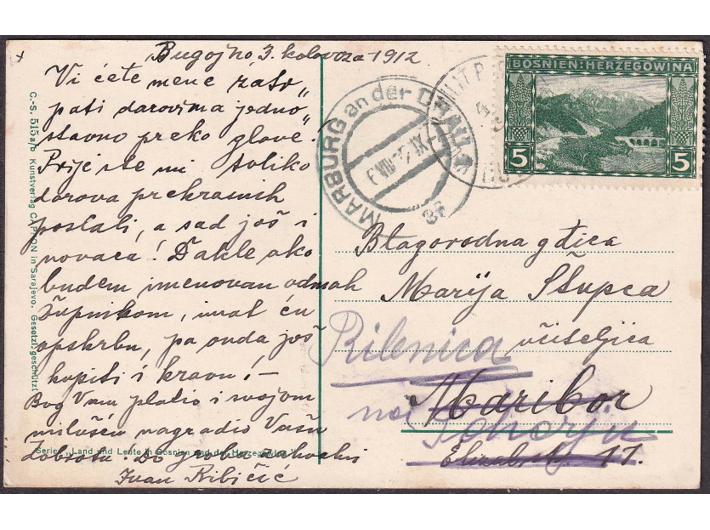 Bugojno, 3. kolovoza 1912
Vi ćete mene zatr„
pati darovima jedno„
stavno preko glave!
Prije ste mi toliko
darova prekrasnih
poslali, a sad još i
novaca! Dakle ako
budem imenovan odmah
župnikom, imat ću
opskrbu, pa onda još
kupiti i kravu! –
Bog Vam platio i svojom
milošću nagradio Vašu
dobrotu. Do groba zahvalni
Ivan Ribičić
C.-S. 515a/b Kunstverlag in Sarajevo. Gesetzl. geschützt
Serie: „Land und Leute in Bosnien und der Herzegowina"
MARBURG an der DRAU
BOSNIEN-HERZEGOWINA
5 5
Blagorodna gđica
Marija Stupca
učiteljica
Ribnica
Maribor
na Pohorju
Elizabet. 17.